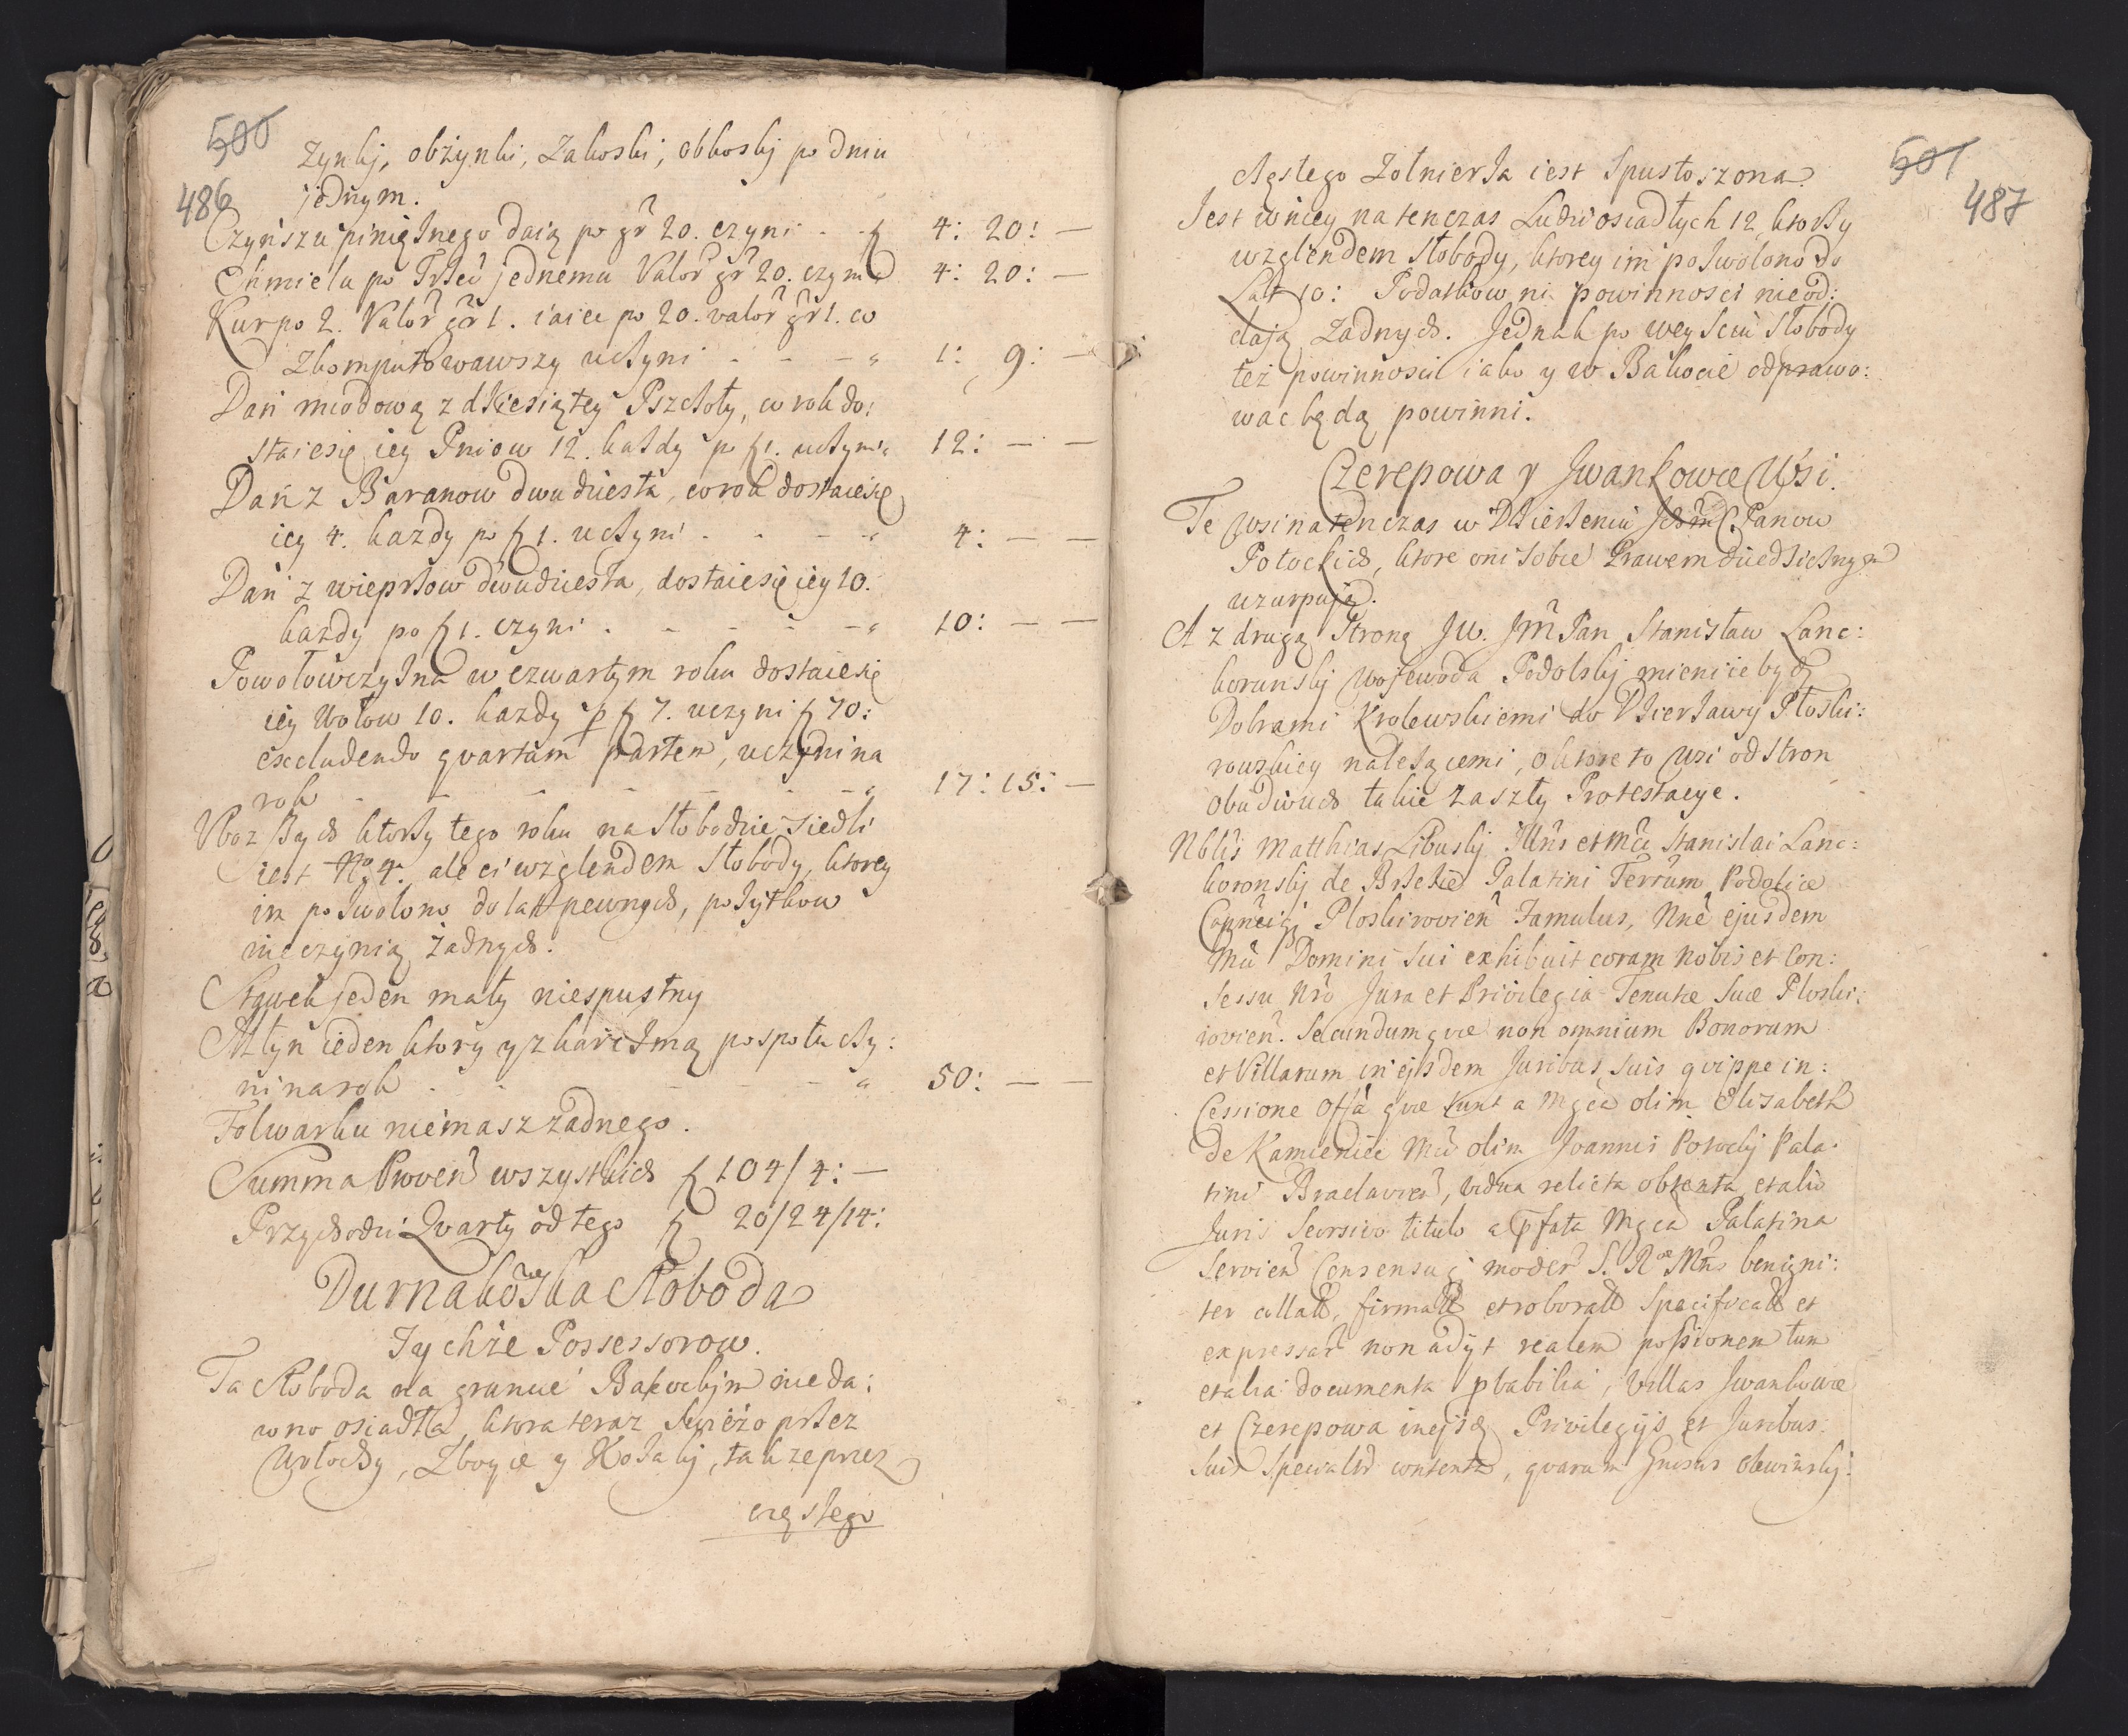 500
486
zynkj, obżynki, Zakoski, obkoskj po dniu
jednym.
Czynszu piniężnego daią po gr 20. czyni - - f 4: 20: —
Chmielu po Trzeci jednemu Valor gr 20. czyni 4: 20: —
Kur po 2. Valor gr 1. iaiec po 20. valor gr 1. co
zkomputowawszy uczyni - - - " 1: 9: —
Dań miodową z dziesiątey Pszczoły, co rok do:
staie się iey Pniow 12. każdy po f 1. uczyni " 12: — —
Dań z Baranow dwudziesta, co rok dostaie się
iey 4. każdy po f 1. uczyni - - - " 4: — —
Dań z wieprzow dwudziesta, dostaie się iey 10.
każdy po f 1. czyni - - - - " 10: — —
Powołowczyzna w czwartym roku dostaie się
iey Wołow 10. każdy p f 7. uczyni f 70:
excludendo quartam partem, uczyni na
rok - - - - - - " 17: 15: —
Vbozszych ktorzy tego roku na Słobodzie siedli
iest No 4. ale ci wzglendem Słobody, ktorey
im pozwolono do lat pewnych, pożytkow
nie czynią żadnych.
Stawek jeden mały niespustny
Młyn ieden ktory y z karczmą pospołu czy:
ni na rok - - - - - " 50: — —
Folwarku niemasz żadnego.
Summa Proven wszystkich f 104/4: —
Przychodzi Qvarty od tego f 20/24/14:
Durnakowska Słoboda
Tychże Possessorow.
Ta Słoboda na gruncie Bakockim nieda:
wno osiadła, ktora teraz świeżo przez
Włochy, Zboyce y Kozaky, także przez
częstego
501
487
częstego Zołnierza iest spustoszona.
Jest w niey na ten czas Ludzi osiadłych 12, ktorzy
wzglendem Słobody, ktorey im pozwolono do
Lat 10: Podatkow ni powinnosci nie od:
daią Zadnych. Jednak po weysciu Słobody
też powinnosci iako y w Bakocie odprawo:
wac będą powinni.
Czerepowa y Jwankowce Wsi.
Te Wsi na ten czas w Dzierżeniu Ichm Panow
Potockich, ktore oni sobie Prawem dziedzicznym
uzurpuią.
A z drugą Stroną Jw. Jm Pan Stanisław Lanc:
korunskj Wojewoda Podolskj mieni ie bydź
Dobrami Krolewskiemi do Dzierżawy Płoski:
rowskiey należącemi, o ktore to wsi od stron
obudwuch takie zaszły Protestacye.
Nblis Matthias Libuskj Illris et Mci Stanislai Lanc:
koronskj de Brzezie Palatini Terrarum Podoliae
Capnei Ploskirovien Famulus, Nne ejusdem
Mci Domini sui exhibuit coram nobis et Con:
sessu Nro Jura et Privilegia Tenutae suae Ploski:
rovien. Secundum quae non omnium Bonorum
et Villarum in ejsdem Juribus suis quippe in:
Cessione quae sunt a Mgca olim Elisabeth
de Kamieniec Mci olim Joannis Potockj Pala:
tini Braclavien, vidua relicta obtenta, et alio
Juris seorsivo titulo a pfata Mgca Palatina
servien Consensuq moder S. R. Mtis benigni:
ter collatt, firmatt et roboratt specificatt et
expressar non adijt realem possionem tum
et alia documenta pbabilia, Villas Jwankowce
et Czerepowa in ejsd Privilegijs et Juribus
suis contentt, quarum Gnosus